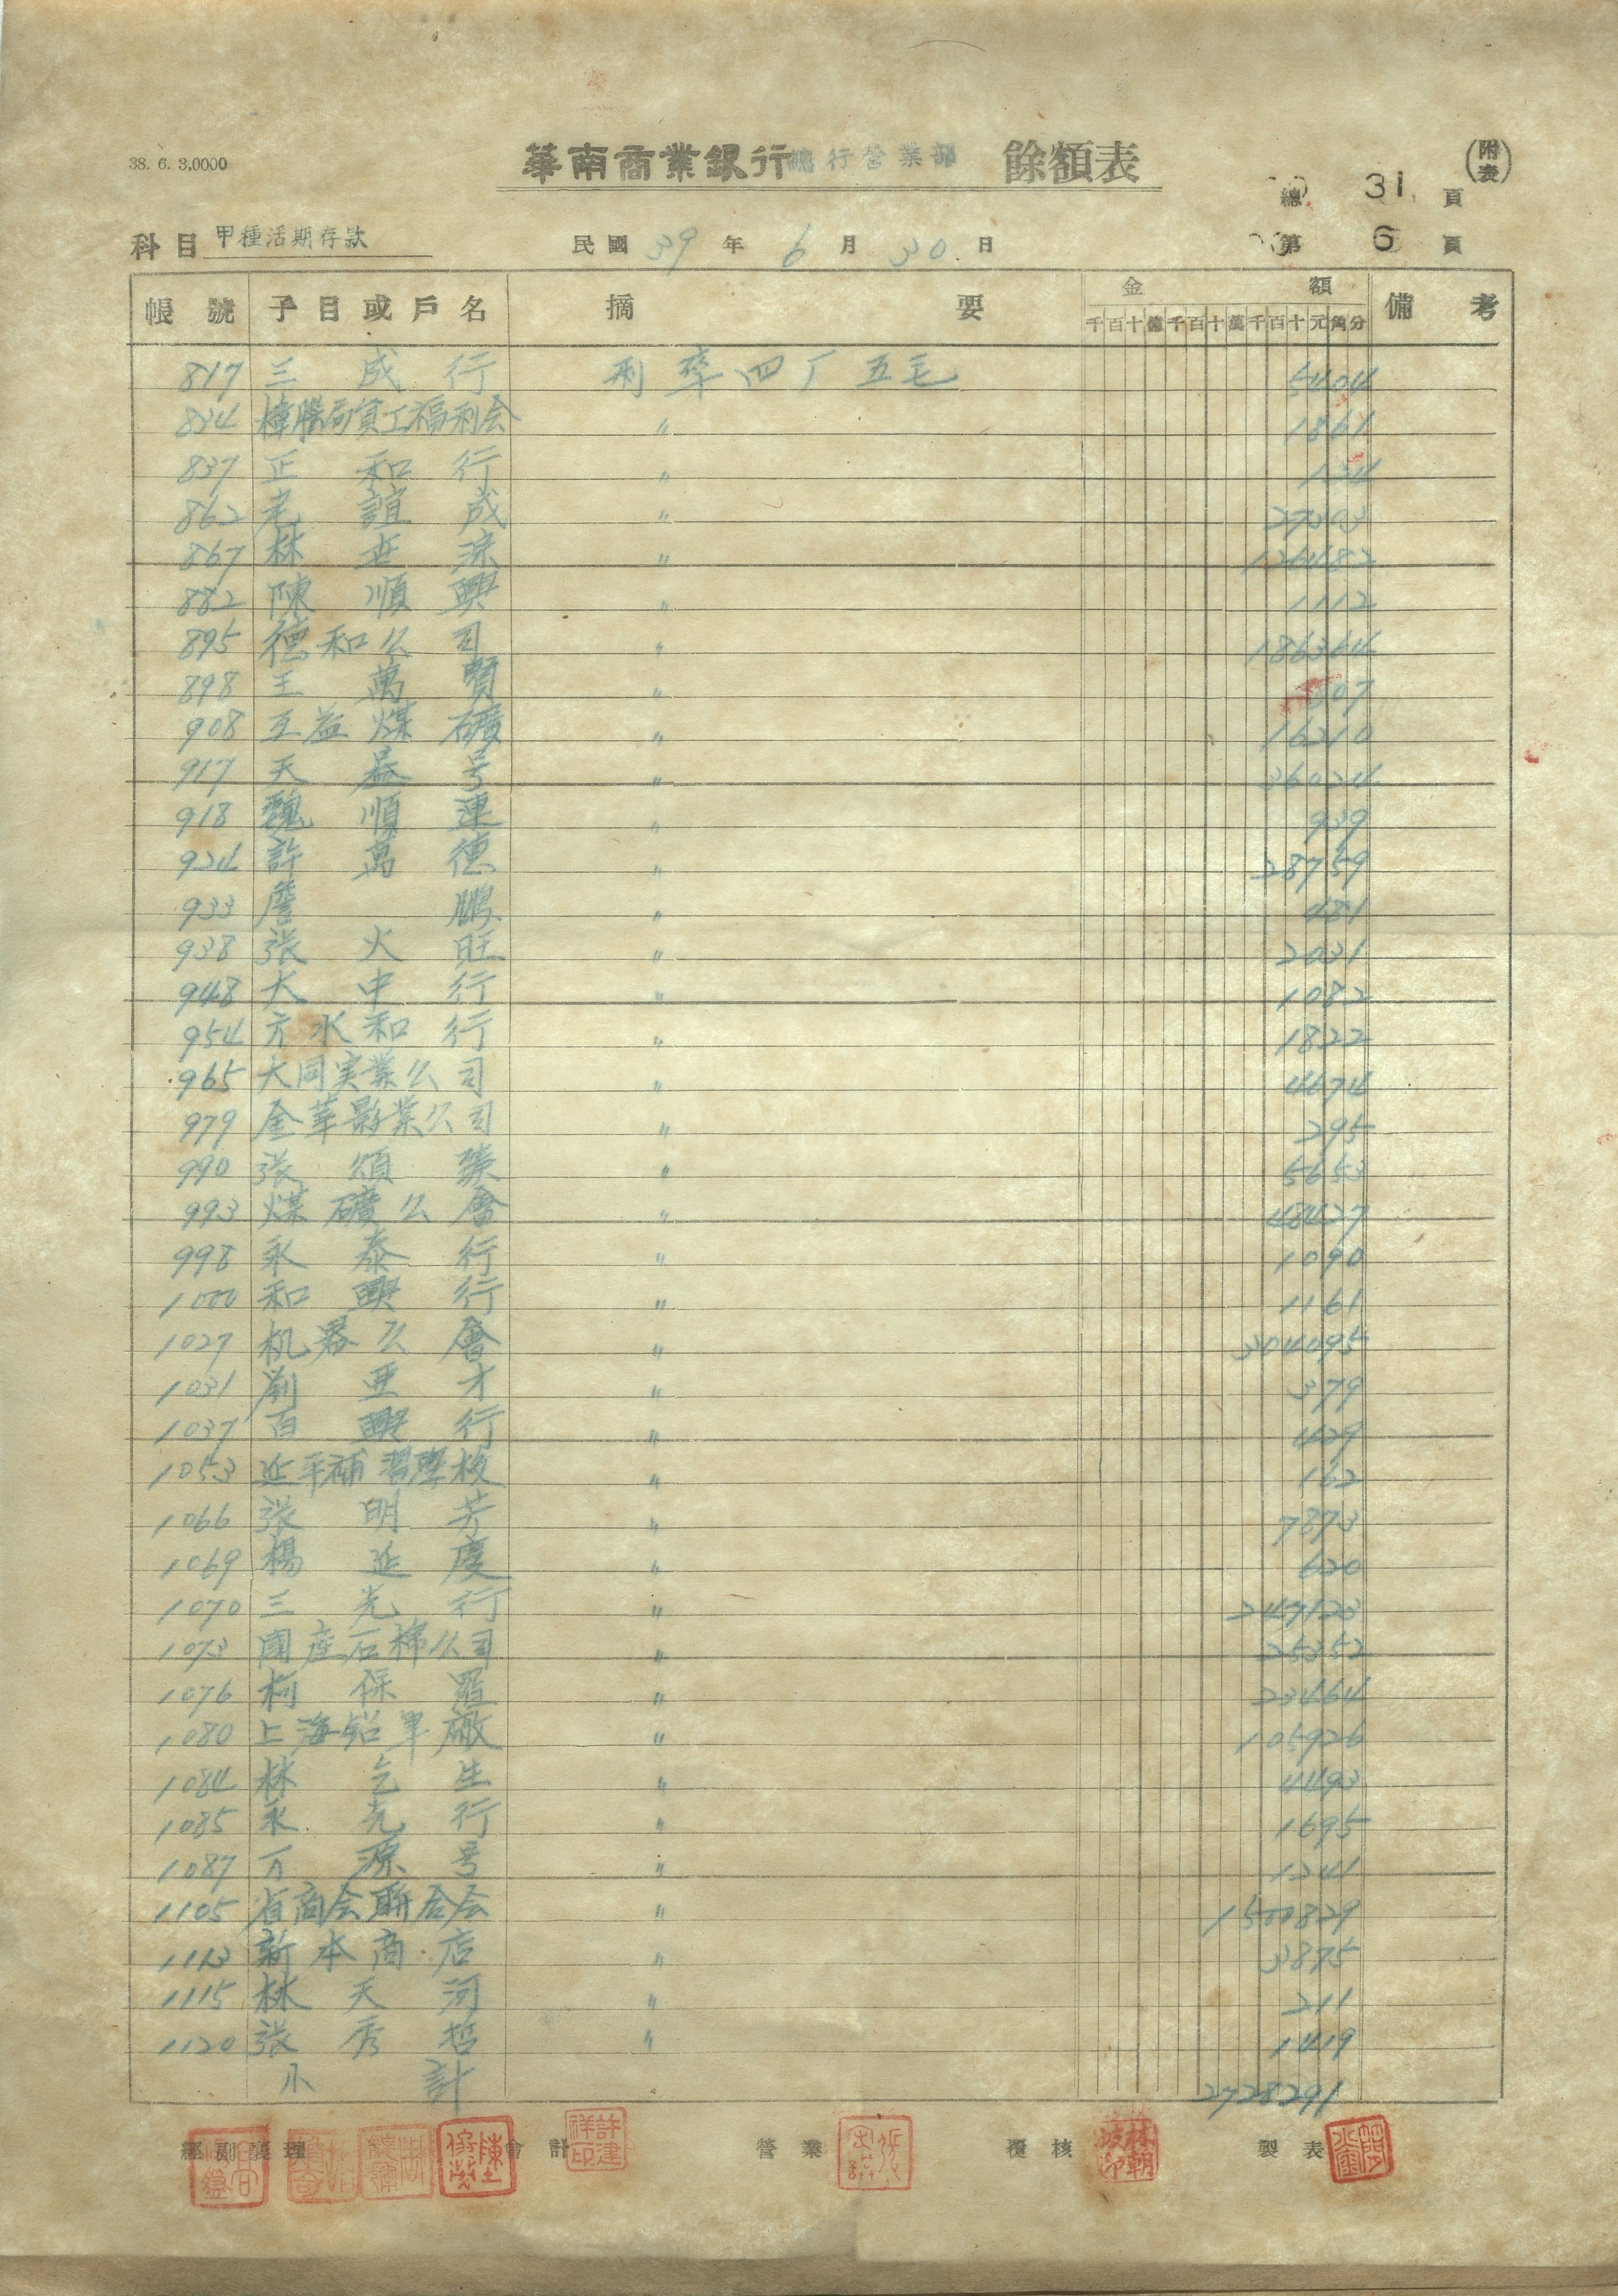 38. 6. 3.0000
華南商業銀行總行營業部 餘額表 (附表)
總 31 頁
科目 甲種活期存款 民國 39 年 6 月 30 日 第 6 頁
帳號 子目或戶名 摘要 金額 備考
千百十億千百十萬千百十元角分
817 三成行 利率四厂五毛 5404
834 樟腦局員工福利会 〃 1861
837 正和行 〃 134
862 老誼成 〃 27303
867 林世流 〃 126482
882 陳順興 〃 1112
895 德和公司 〃 186364
898 王萬賢 〃 307
908 互益煤礦 〃 16210
917 天益号 〃 360324
918 魏順連 〃 939
924 許萬德 〃 28759
933 詹鵬 〃 481
938 張火旺 〃 2031
948 大中行 〃 1082
954 方水和行 〃 1822
965 大同実業公司 〃 4674
979 金華影業公司 〃 295
990 張煩 〃 5653
993 煤礦公會 〃 48427
998 永泰行 〃 1090
1000 和興行 〃 1161
1027 机器公會 〃 304095
1031 劉亜才 〃 379
1037 百興行 〃 429
1053 延平補習學校 〃 162
1066 張明芳 〃 7873
1069 楊延慶 〃 620
1070 三光行 〃 247123
1073 國産石棉公司 〃 25352
1076 柯保羅 〃 234364
1080 上海鉛筆廠 〃 105926
1084 林乞生 〃 4493
1085 永光行 〃 1695
1087 万源号 〃 1341
1105 省商会聯合会 〃 1500829
1113 新本商店 〃 3875
1115 林天河 〃 211
1120 張秀哲 〃 1419
小計 2728291
經副襄理 會計 許建祥印 營業 覆核 林朝 製表